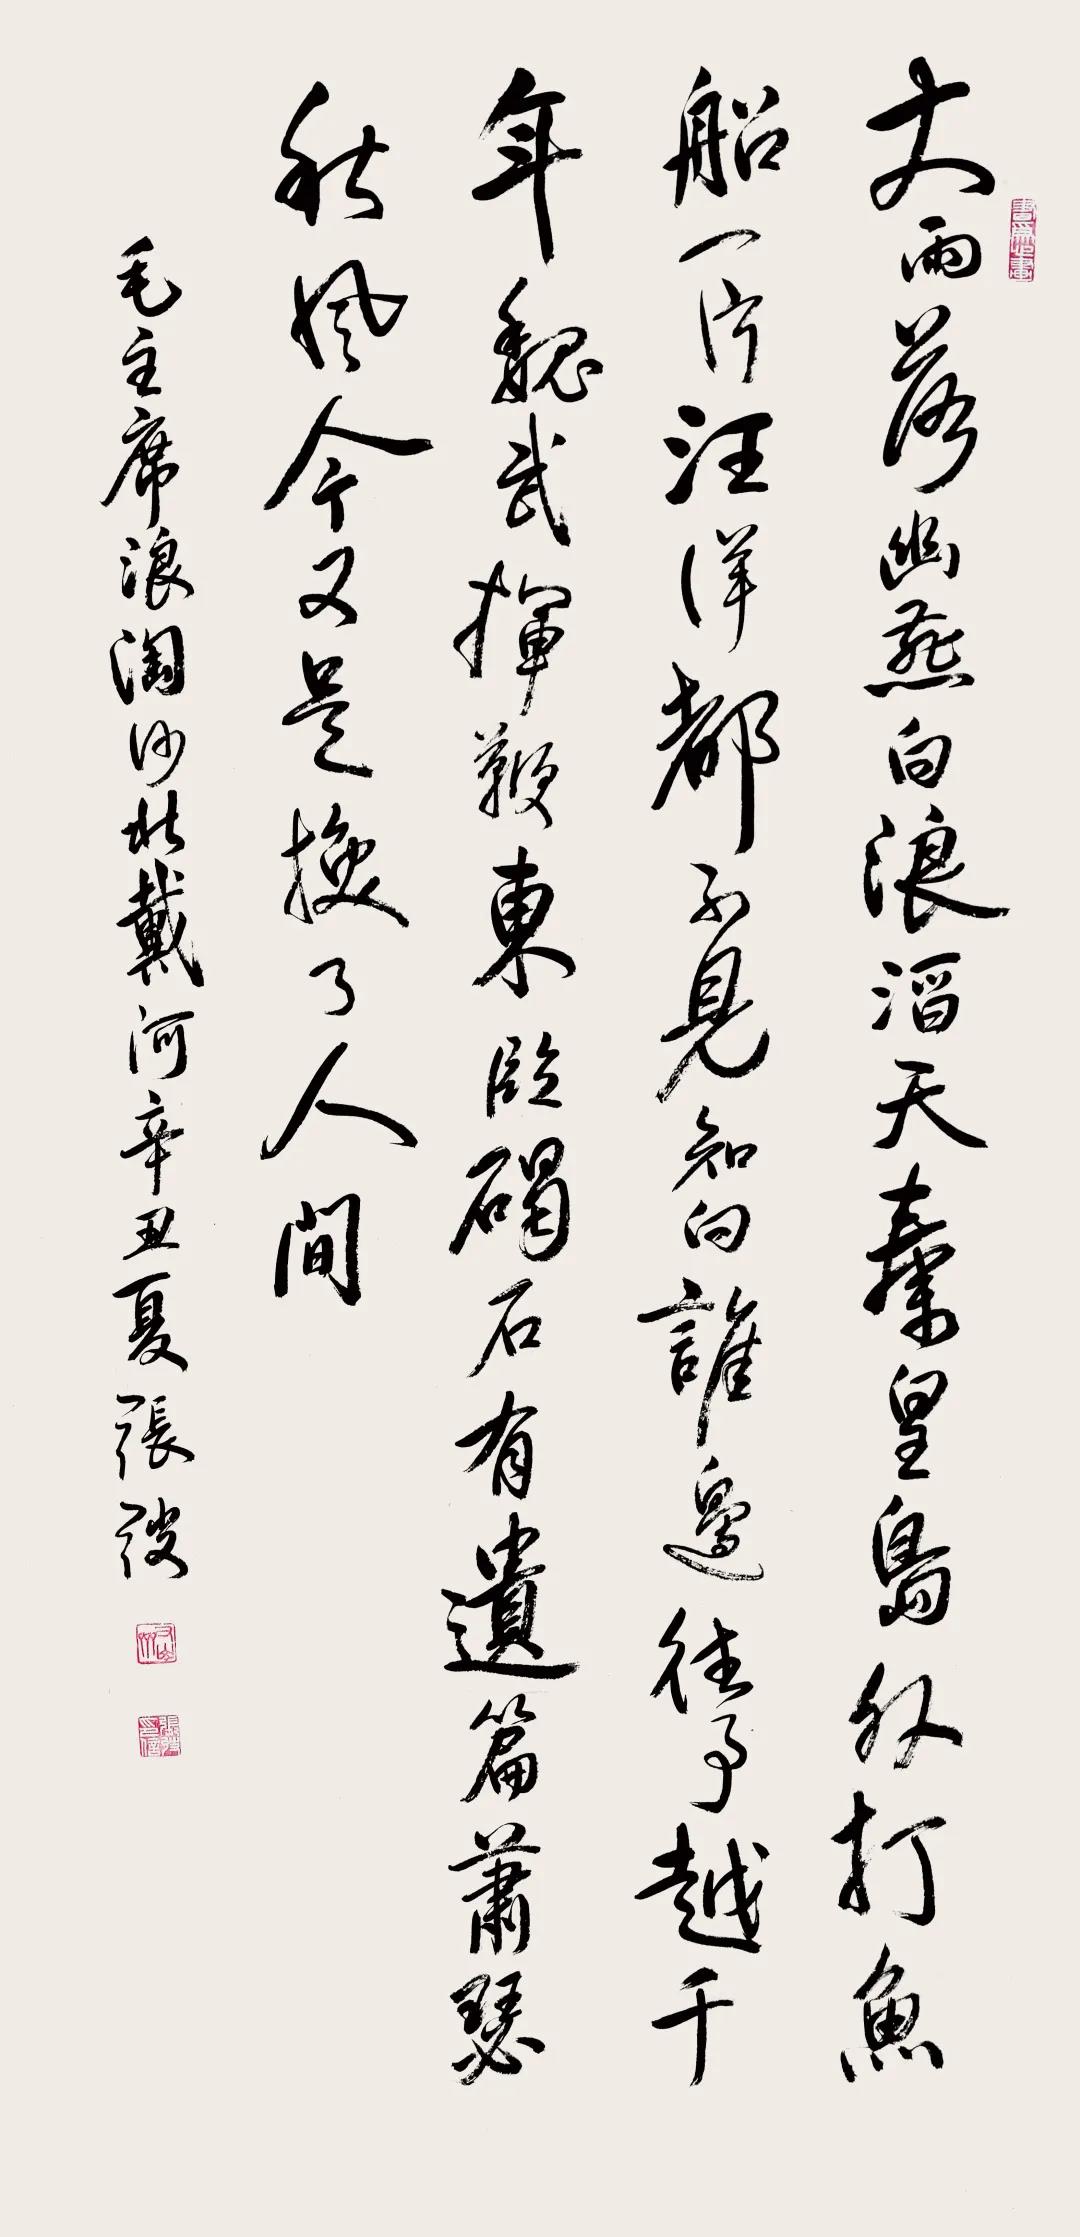 大雨落幽燕白浪滔天秦皇島外打魚
船一片汪洋都不見知向誰邊往事越千
年魏武揮鞭東臨碣石有遺篇蕭瑟
秋風今又是換了人間
毛主席浪淘沙北戴河辛丑夏張